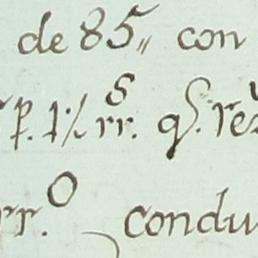 de 85,, con
p. 1% rr.s q.s re
rr.o condu